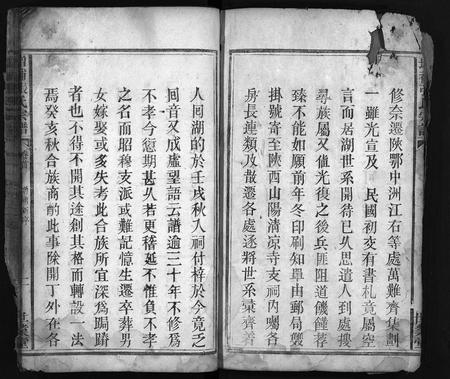 修奈遷陝鄂中洲江右等處萬難齊集劃
一雖光宣及　民國初叅有書札竟屬空
言而居湖世系開待已久思遣人到處搜
尋族屬又值光復之後兵匪阻道饑饉荐
臻不能如願前年冬印刷知單由郵局襲
掛號寄至陝西山陽清凉寺支祠內囑各
房長連類及散遷各處逐將世系彙齊
人囘湖的於壬戌秋入祠付梓於今竟之
囘音又成虛望語云譜逾三十年不修為
不孝今愆期甚久若更稽延不惟負不孝
之名而昭穆支派或難記憶生遷卒葬男
女嫁娶或多失考此合族所宜深為跼蹐
者也不得不開其途剏其格而轉設一法
焉癸亥秋合族商酌此事除開丁外在各